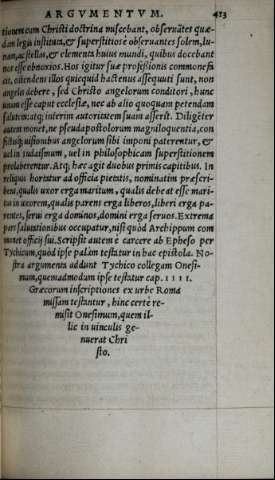 ARGVMENTVM. 413
tionem cum Christi doctrina miscebant, obseruãtes quæ-
dam legis instituta, & superstitiose obseruantes solem, lu-
nam, ac stellas, & elementa huius mundi, quibus docebant
nos esse obnoxios. Hos igitur suæ professionis commonefa
cit, ostendens illos quicquid hactenus assequuti sunt, non
angelis debere, sed Christo angelorum conditori, hunc
unum esse caput ecclesiæ, nec ab alio quoquam petendam
salutem: atq; interim autoritatem suam asserit. Diligẽter
autem monet, ne pseudapostolorum magniloquentia, con
fictisq; uisionibus angelorum sibi imponi paterentur, &
uel in Iudaismum, uel in philosophicam superstitionem
prolaberentur. Atq; hæc agit duobus primis capitibus. In
reliquis hortatur ad officia pietatis, nominatim præscri-
bens, qualis uxor erga maritum, qualis debeat esse mari-
tus in uxorem, qualis parens erga liberos, liberi erga pa-
rentes, serui erga dominos, domini erga seruos. Extrema
pars salutationibus occupatur, nisi quòd Archippum com
monet officij sui. Scripsit autem è carcere ab Epheso per
Tychicum, quòd ipse palàm testatur in hac epistola. No-
stra argumenta addunt Tychico collegam Onesi-
mum, quemadmodum ipse testatur cap. IIII.
Græcorum inscriptiones ex urbe Roma
missam testantur, hinc certè re-
misit Onesimum, quem il-
lic in uinculis ge-
nuerat Chri
sto.